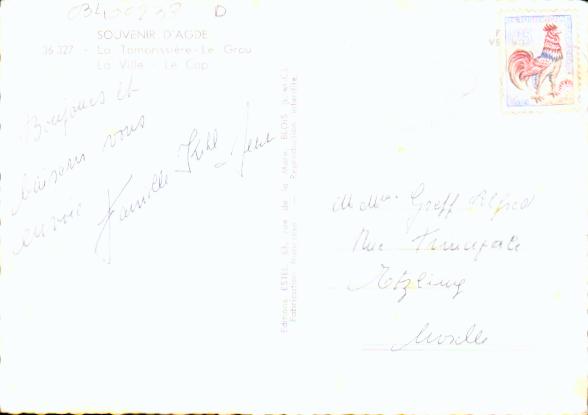 03400338 D
SOUVENIR D'AGDE
36.327 - La Tamarissière - Le Grau
La Ville - Le Cap
Bonjours et
baisers vous
envoie
Famille Kehl
Editions ESTEL, 63, rue de la Mare, BLOIS
Fabrication française — Reproduction interdite
M Mme Greff Alfred
Rue Principale
Metzling
Moselle